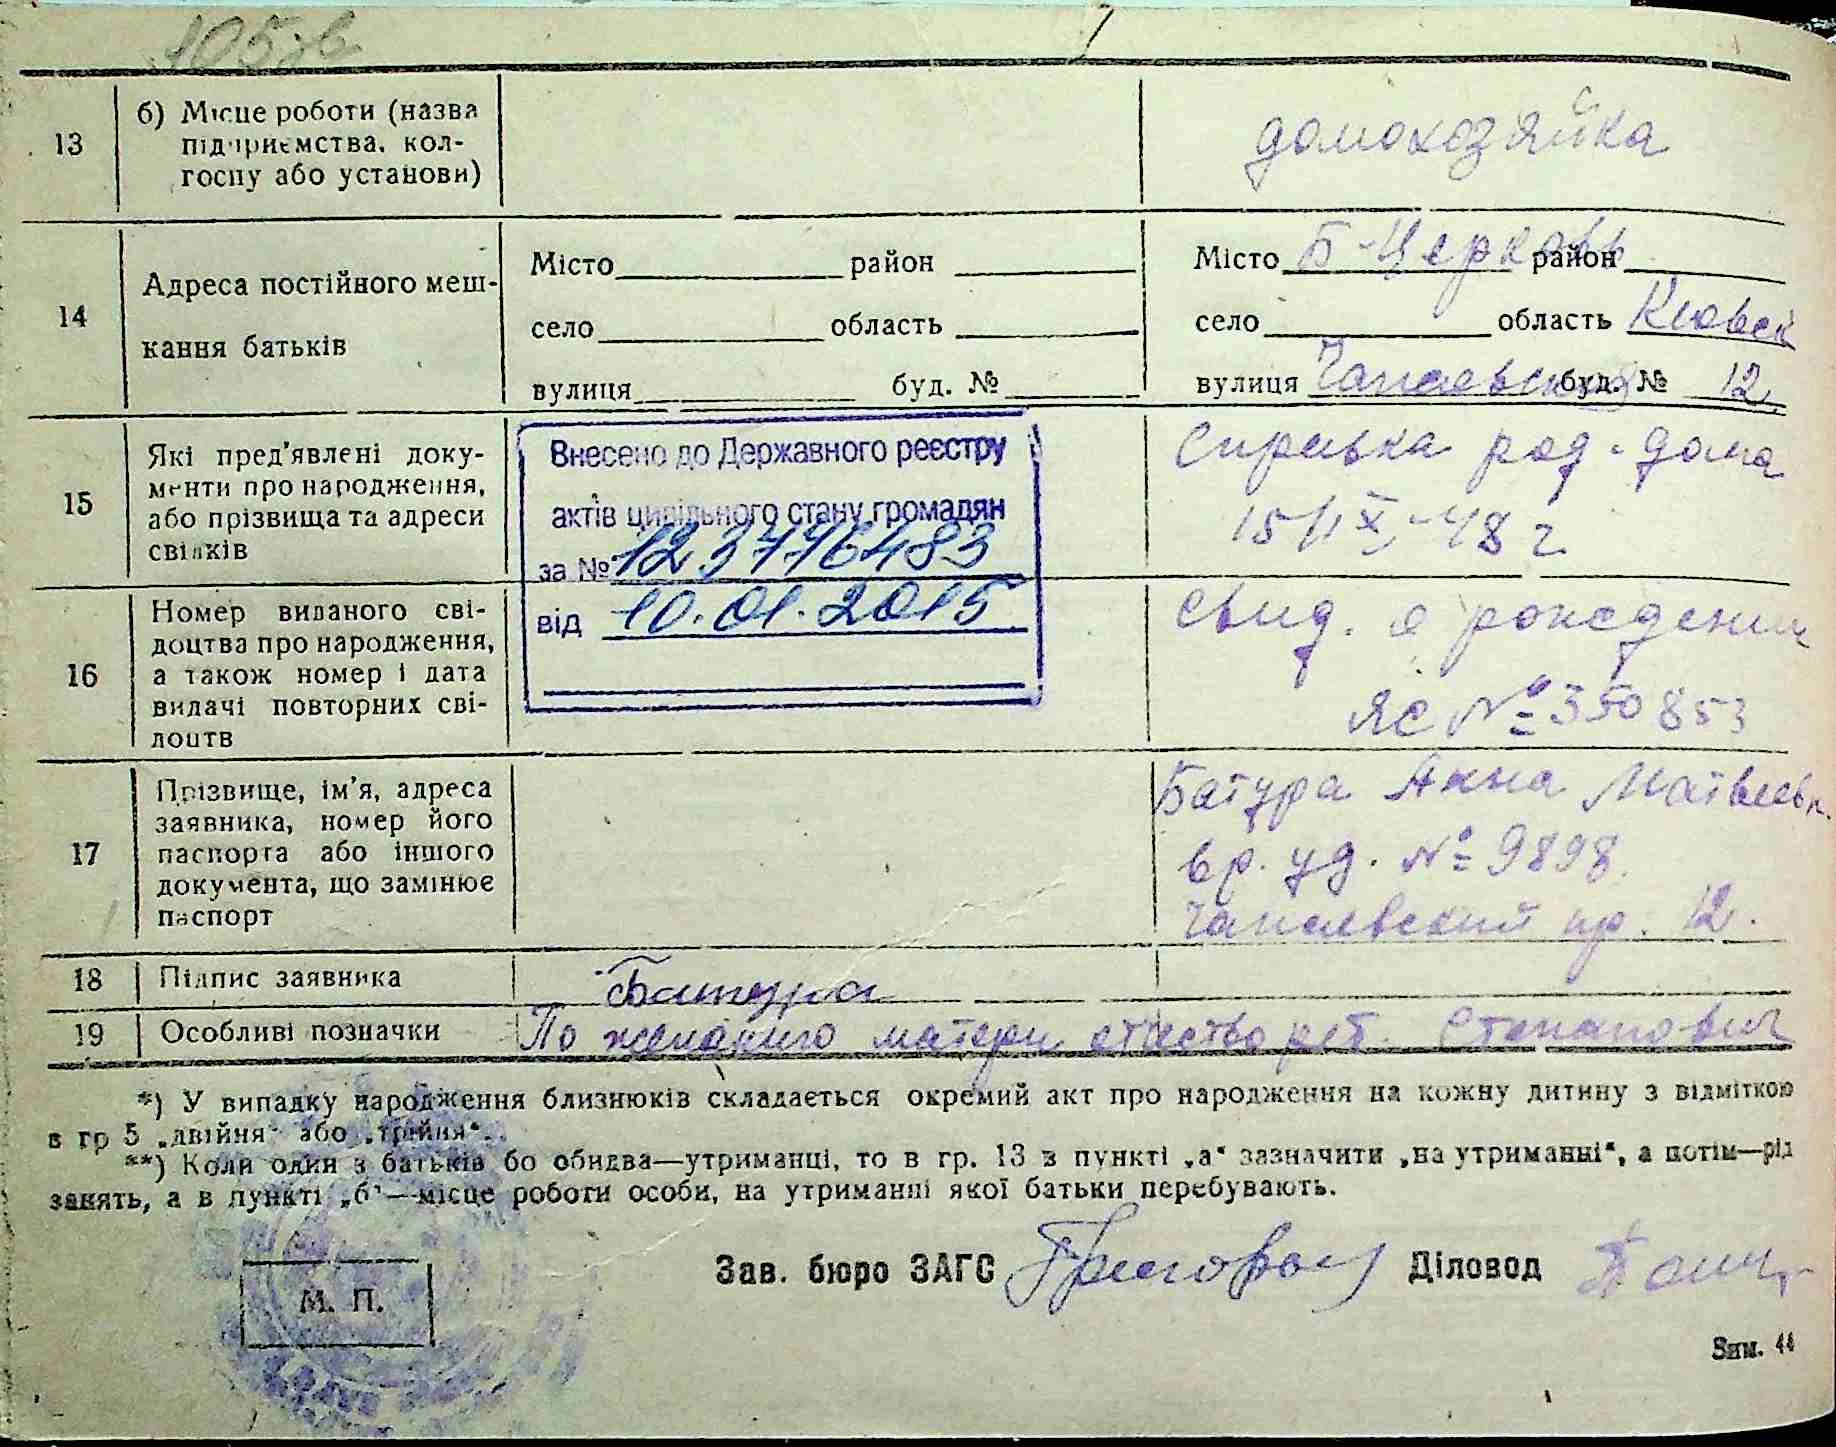 105зв
13
б) Місце роботи (назва
підприємства, кол-
госпу або установи)
домохозяйка
14
Адреса постійного меш-
кання батьків
Місто район
село область
вулиця буд. №
Місто Б-Церковь район
село область Киевск
вулиця Чапаевский буд. № 12.
15
Які пред'явлені доку-
менти про народження,
або прізвища та адреси
свідків
Внесено до Державного реєстру
актів цивільного стану громадян
за № 123776483
від 10.01.2015
Справка род-дома
15/IX-48 г
16
Номер виданого сві-
доцтва про народження,
а також номер і дата
видачі повторних сві-
доцтв
Свид. о рождении
ЯС № 350853
17
Прізвище, ім'я, адреса
заявника, номер його
паспорта або іншого
документа, що замінює
паспорт
Батура Анна Матвеевн.
вр. уд. № 9898.
Чапаевский пр. 12.
18 Підпис заявника Батура
19 Особливі позначки По желанию матери отчество реб. Степанович
*) У випадку народження близнюків складається окремий акт про народження на кожну дитину з відміткою
в гр 5 „двійня" або „трійня".
**) Коли один з батьків бо обидва—утриманці, то в гр. 13 в пункті „а" зазначити „на утриманні", а потім—рід
занять, а в пункті „б"—місце роботи особи, на утриманні якої батьки перебувають.
М. П.
Зав. бюро ЗАГС Діловод
Зим. 44